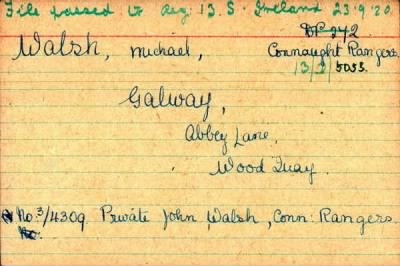 File passed to Reg. 13. S. Ireland 23.9.20.
DP 242
Walsh, Michael, Connaught Rangers
13/3/5055.
Galway,
Abbey Lane,
Wood Quay.
No. 3/4309 Private John Walsh, Conn: Rangers.
No.